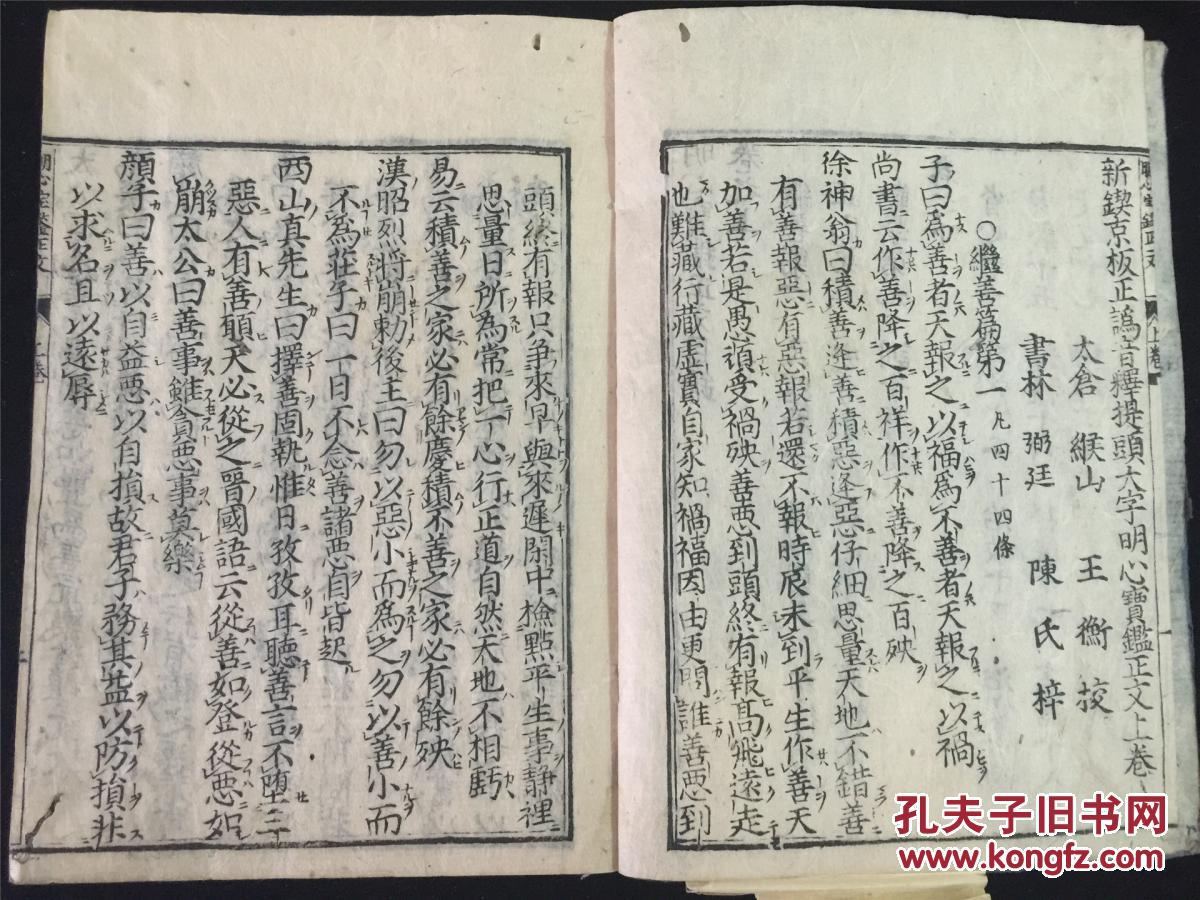 新鍥京板正譌音釋提頭大字明心寶鑑正文上卷
太倉 緱山 王衡 挍
書林 弼廷 陳氏 梓
○繼善篇第一 凡四十四條
子曰爲善者天報之以福爲不善者天報之以禍
尚書云作善降之百祥作不善降之百殃
徐神翁曰積善逢善積惡逢惡仔細思量天地不錯善
有善報惡有惡報若還不報時辰未到平生作善天
加善若是愚頑受禍殃善惡到頭終有報高飛遠走
也難藏行藏虛實自家知禍福因由更問誰善惡到
頭終有報只爭來早與來遲閑中檢點平生事静裡
思量日所為常把一心行正道自然天地不相虧
易云積善之家必有餘慶積不善之家必有餘殃
漢昭烈將崩勅後主曰勿以惡小而為之勿以善小而
不為莊子曰一日不念善諸惡自皆起
西山真先生曰擇善固執惟日孜孜耳聽善言不墮三
惡人有善願天必從之晋國語云從善如登從惡如
崩太公曰善事雖貪惡事莫樂
顔子曰善以自益惡以自損故君子務其益以防損非
以求名且以遠辱
上卷
孔夫子旧书网
www.kongfz.com